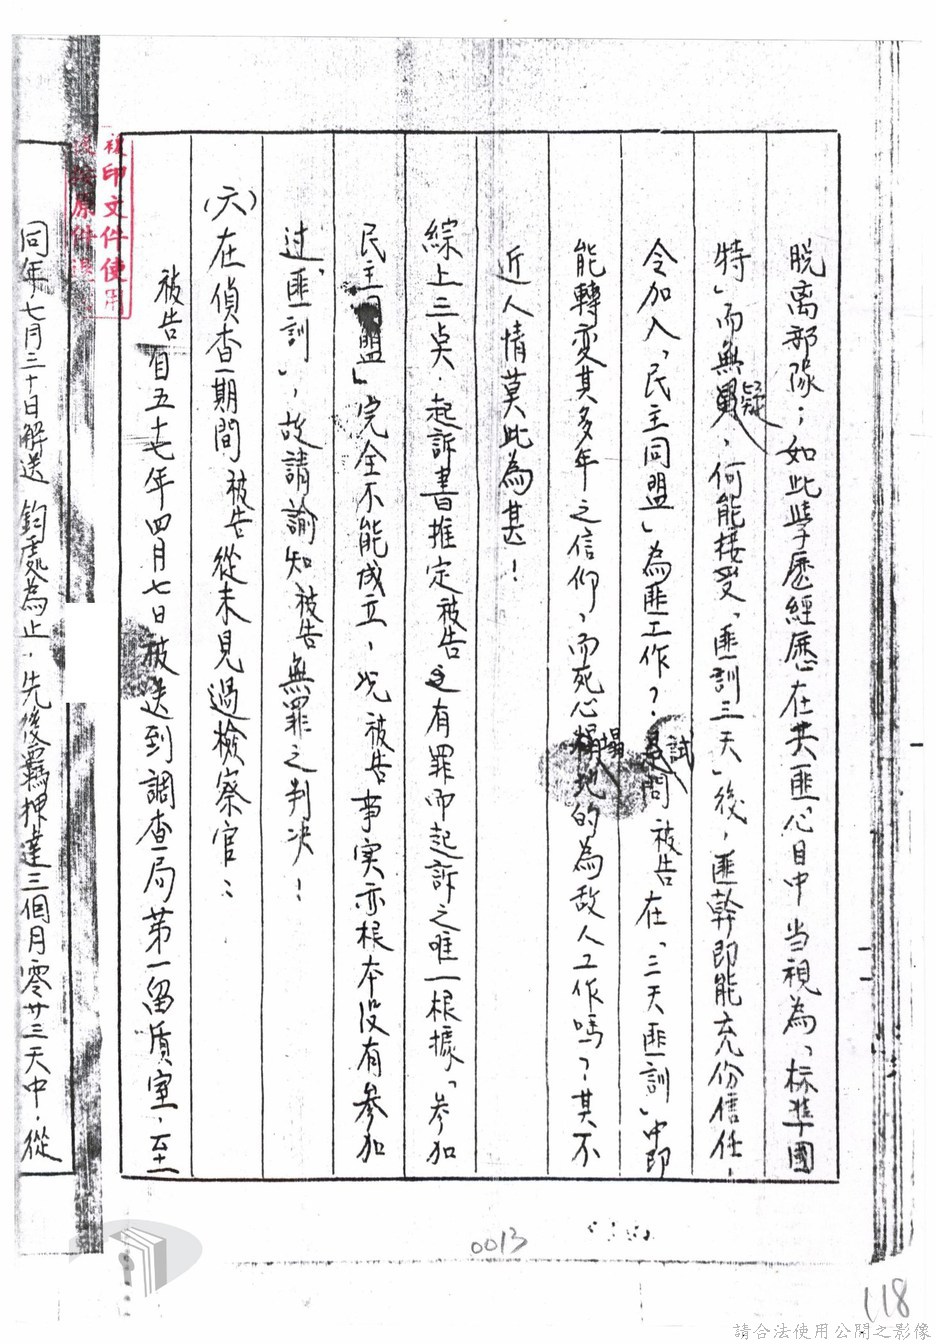 脫离部隊；如此學歷經歷在共匪心目中當視為「标準國
特」而無疑，何能接受「匪訓三天」後，匪幹即能充份信任，
令加入「民主同盟」為匪工作？試問被告在「三天匪訓」中即
能轉变其多年之信仰，而死心塌地的為敌人工作嗎？其不
近人情莫此為甚！
綜上三点，起訴書推定被告之有罪而起訴之唯一根據「参加
民主同盟」完全不能成立，况被告事实亦根本没有参加
过「匪訓」，故請諭知被告無罪之判决！
(六)在偵查期間被告從未見過檢察官：
被告自五十七年四月七日被送到調查局第一留質室，至
同年七月三十日解送鈞處為止，先後羈押達三個月零廿三天中，從
複印文件使用
原件
0013
118
請合法使用公開之影像